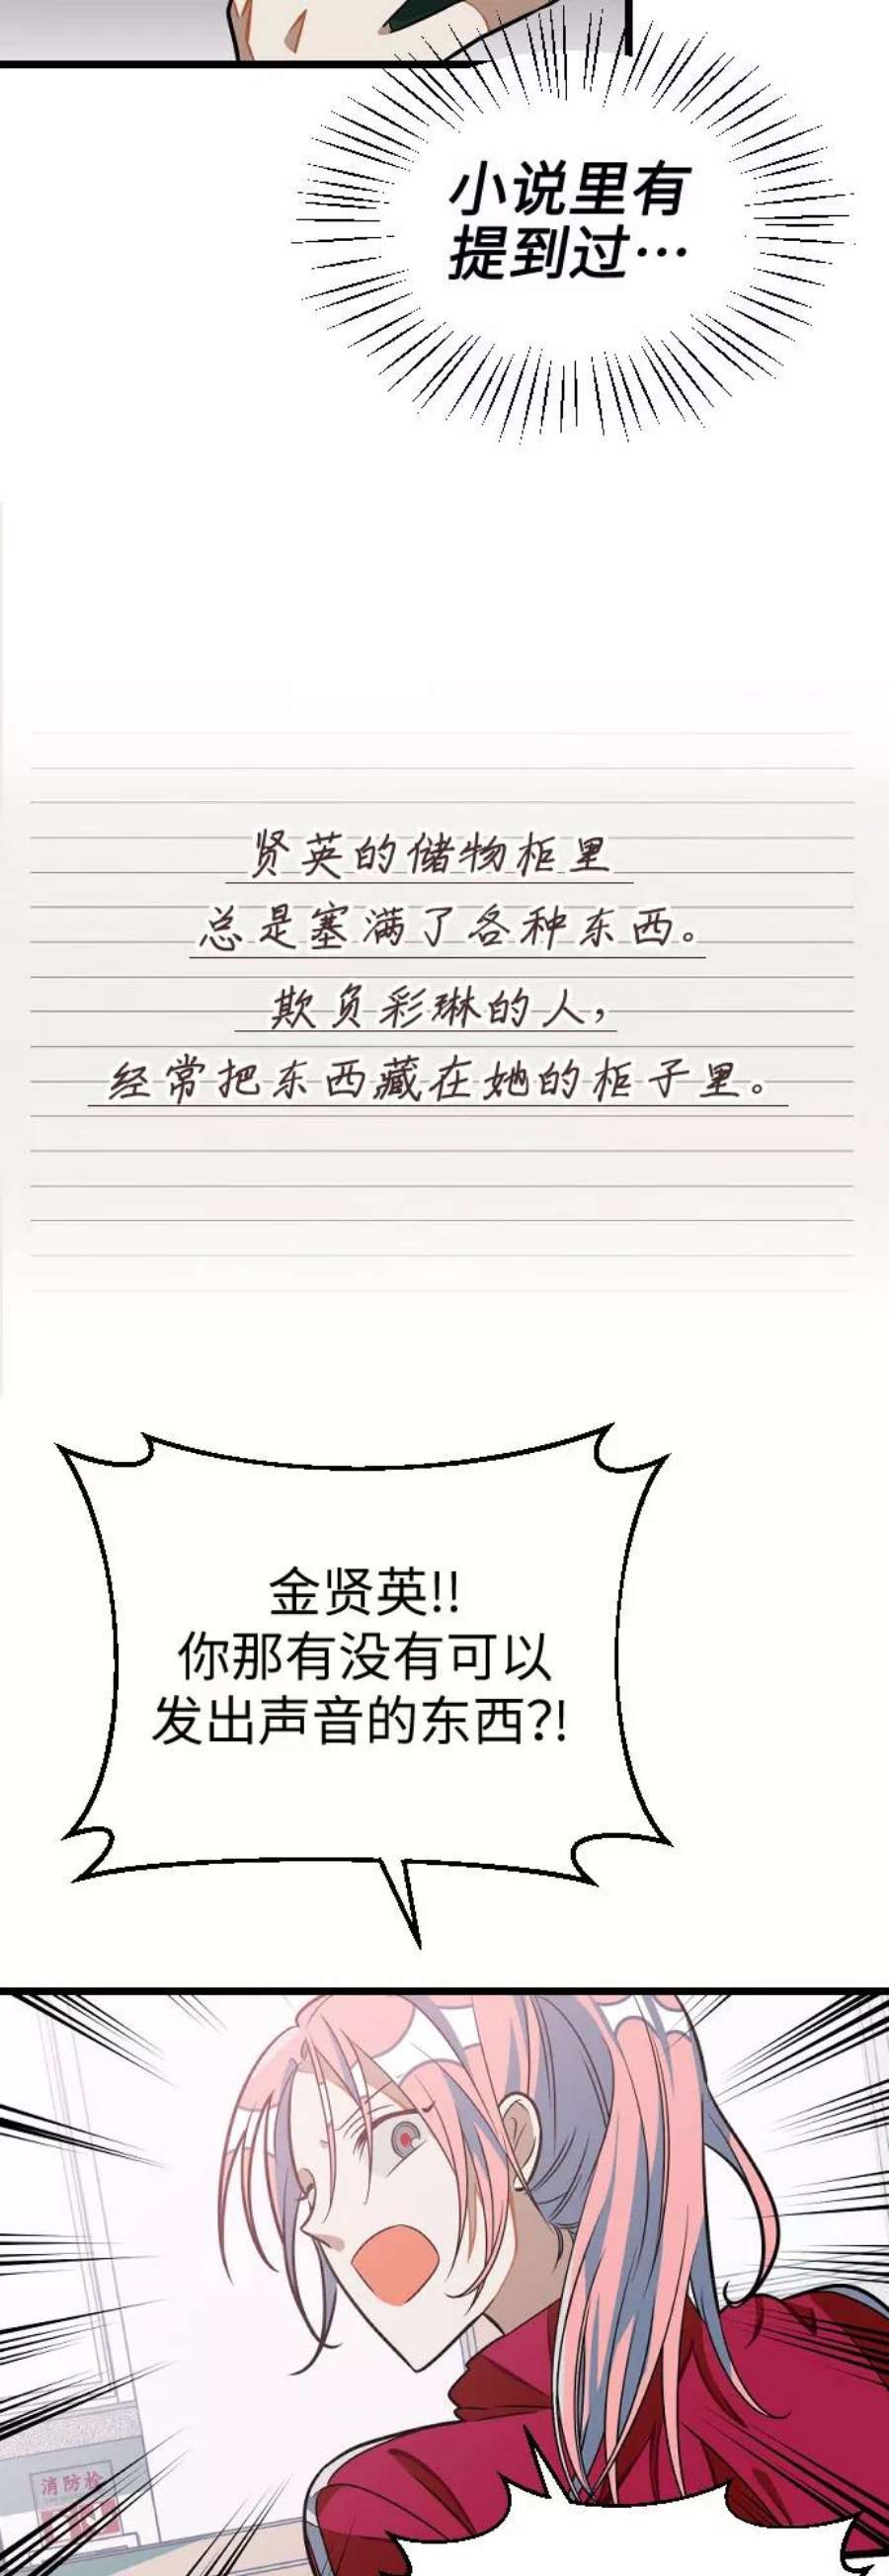 小说里有
提到过…
贤英的储物柜里
总是塞满了各种东西。
欺负彩琳的人，
经常把东西藏在她的柜子里。
金贤英!!
你那有没有可以
发出声音的东西?!
消防栓